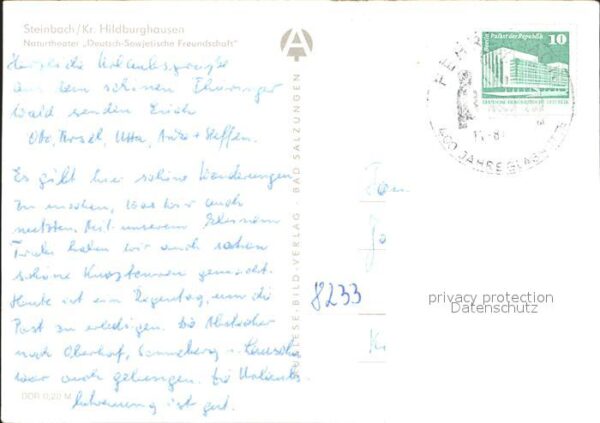 Steinbach/Kr. Hildburghausen
Naturtheater „Deutsch-Sowjetische Freundschaft"
Herzliche Urlaubsgrüße
aus dem schönen Thüringer
Wald senden Euch
Otto, Utta, Steffen.
Es gibt hier schöne Wanderungen
zu machen, was wir auch
nutzten. Mit unserem kleinen
haben wir auch schon
schöne gemacht.
Heute ist ein Regentag, um die
Post zu erledigen. Die Abstecher
nach Oberhof, Sonneberg u. Lauscha
war auch gelungen. Die Urlaubs-
betreuung ist gut.
DDR 0,20 M
AUSLESE-BILD-VERLAG - BAD SALZUNGEN
Berlin Palast der Republik
10
DEUTSCHE DEMOKRATISCHE REPUBLIK
400 JAHRE GLAS
8233
privacy protection
Datenschutz